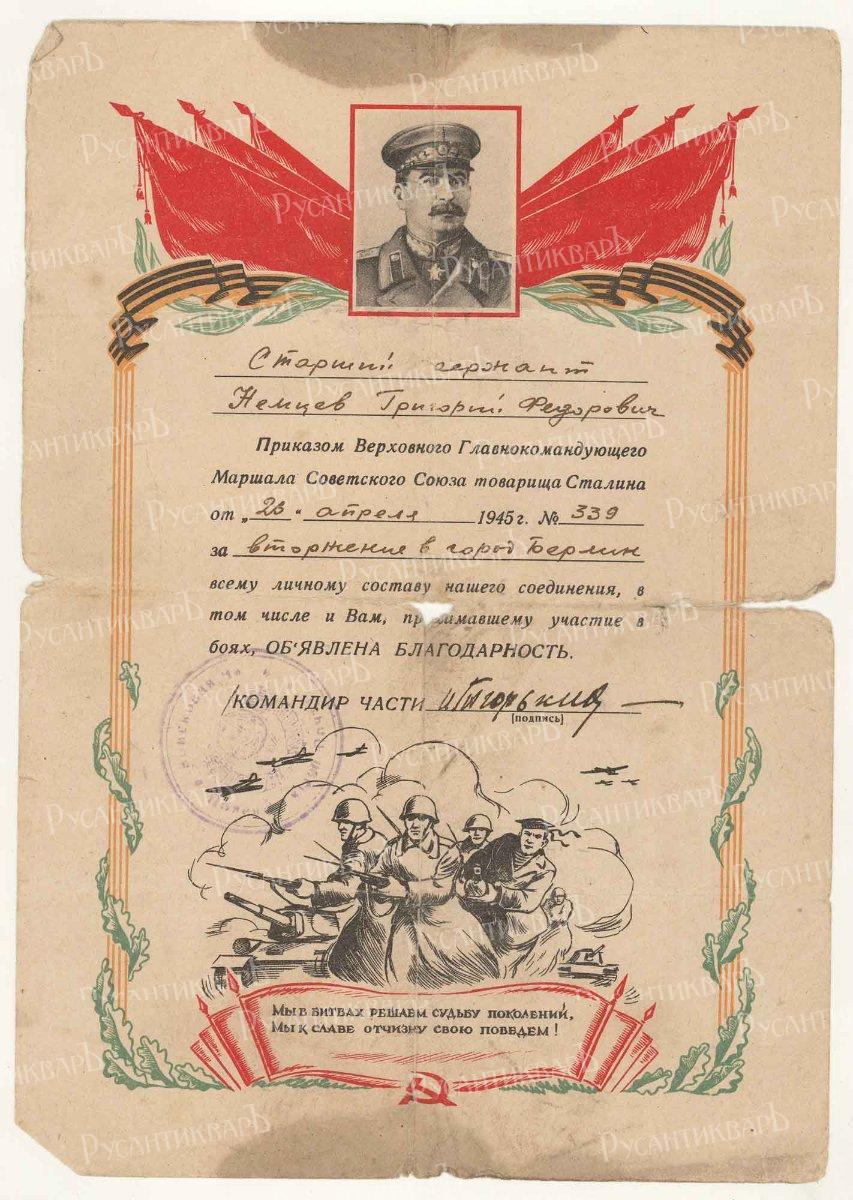 Старший сержант
Немцев Григорий Федорович
Приказом Верховного Главнокомандующего
Маршала Советского Союза товарища Сталина
от „23“ апреля 1945 г. № 339
за вторжение в город Берлин
всему личному составу нашего соединения, в
том числе и Вам, принимавшему участие в
боях, ОБ‘ЯВЛЕНА БЛАГОДАРНОСТЬ.
/КОМАНДИР ЧАСТИ
[подпись]
МЫ В БИТВАХ РЕШАЕМ СУДЬБУ ПОКОЛЕНИЙ,
МЫ К СЛАВЕ ОТЧИЗНУ СВОЮ ПОВЕДЕМ!
РусАнтикварЪ